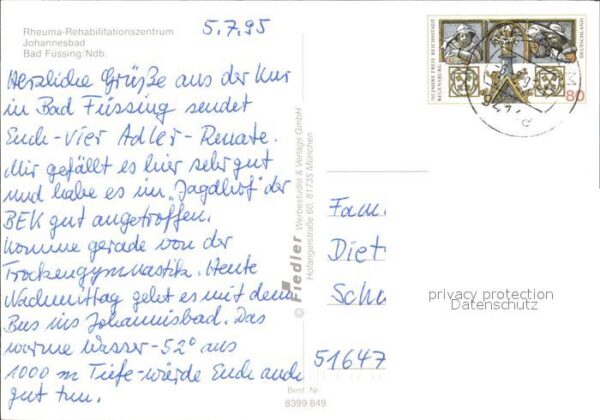 Rheuma-Rehabilitationszentrum
Johannesbad
Bad Füssing/Ndb.
5.7.95
Herzliche Grüße aus der Kur
in Bad Füssing sendet
Euch - vier Adler - Renate.
Mir gefällt es hier sehr gut
und habe es im "Jagdhof" der
BEK gut angetroffen.
Komme gerade von der
Trockengymnastik. Heute
Nachmittag geht es mit dem
Bus ins Johannisbad. Das
warme Wasser - 52° aus
1000 m Tiefe - würde Euch auch
gut tun.
© Fiedler Werbestudio & Verlags GmbH
Hofangerstraße 60, 81735 München
Best. Nr.
8399/849
750 JAHRE FREIE REICHSSTADT
REGENSBURG
DEUTSCHLAND
80
Fam.
Diet
Schu
51647
privacy protection
Datenschutz